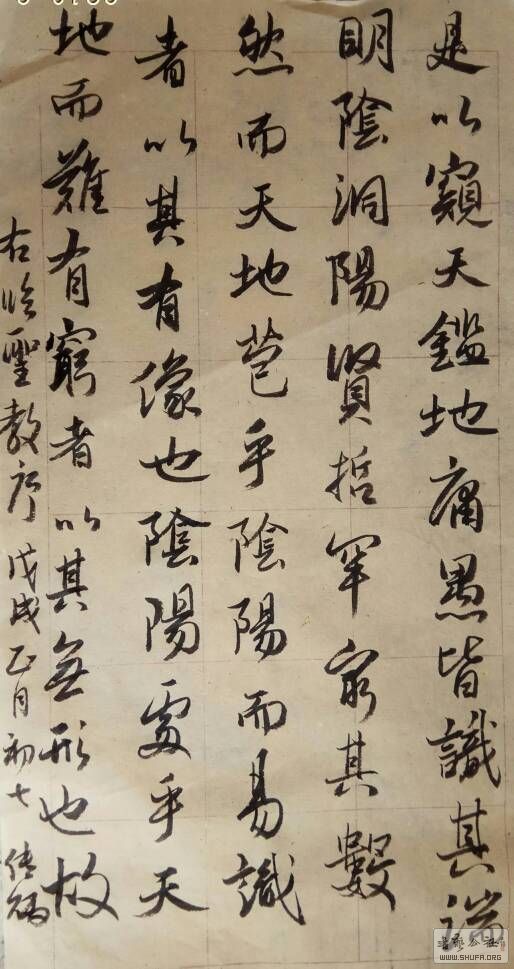 是以窺天鑑地庸愚皆識其端
明陰洞陽賢哲罕窮其數
然而天地苞乎陰陽而易識
者以其有像也陰陽處乎天
地而難有窮者以其無形也故
右臨聖教序戊戌正月初七
WWW.SHUFA.ORG